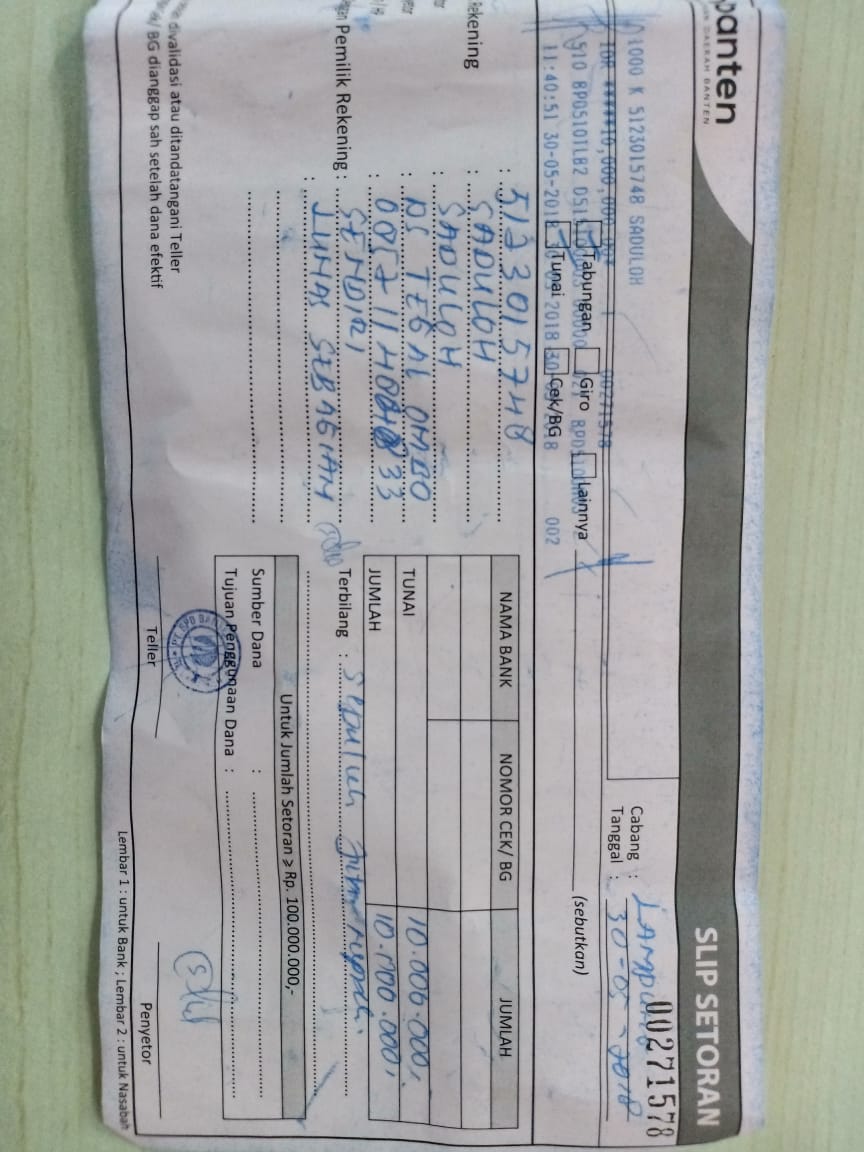 banten
DAERAH BANTEN
SLIP SETORAN
00271578
1000 K 5123015748 SADULOH
IDR 10,000,000
00271578
510 BPD5101LB2
11:40:51 30-05-2018
2018
002
Cabang : LAMPUNG
Tanggal : 30-05-2018
Tabungan Giro Lainnya (sebutkan)
Tunai Cek/BG
: 5123015748
ekening : SADULOH
: SADULOH
: DS TEGAL OMBO
Pemilik Rekening : SENDIRI
: LUNAS SEBAGIAN
NAMA BANK NOMOR CEK/ BG JUMLAH
TUNAI 10.000.000,
JUMLAH 10.000.000,
Terbilang : Sepuluh
Untuk Jumlah Setoran ≥ Rp. 100.000.000,-
Sumber Dana :
Tujuan Penggunaan Dana :
divalidasi atau ditandatangani Teller
BG dianggap sah setelah dana efektif
Teller
Penyetor
Lembar 1 : untuk Bank ; Lembar 2 : untuk Nasabah